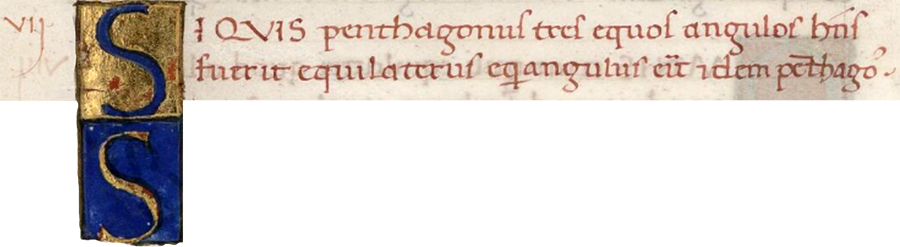 vij SI QVIS penthagonus tres equos angulos hn̄s
fuerit equilaterus eq̇angulus eu̅t idem pe̅thago⁹.
S